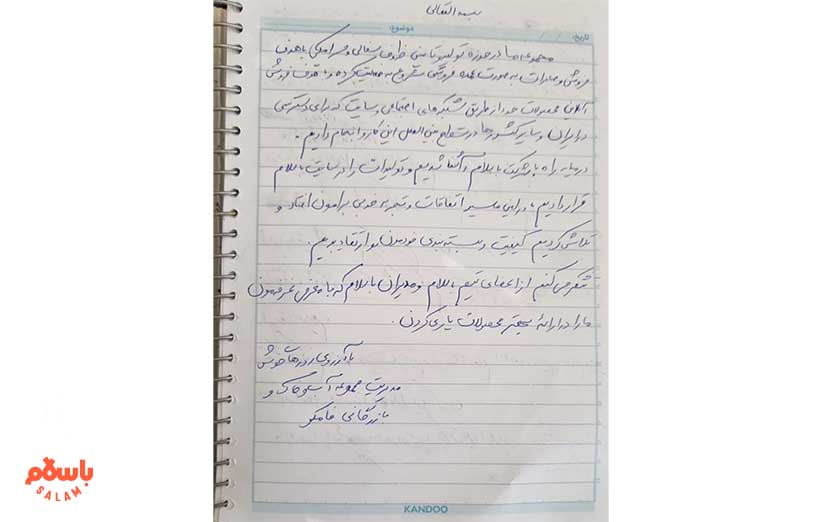 بسمه تعالی
موضوع:
تاریخ: / /
مجموعه ما در حوزه تولید و تامین ظروف سفالی و سرامیکی با هدف
فروش و صادرات به صورت عمده فروشی شروع به فعالیت کرده و با هدف فروش
آنلاین محصولات خود از طریق شبکه‌های اجتماعی و سایت که برای دسترسی
در ایران و سایر کشورها در سطح بین المللی این کار و انجام دادیم.
در میانه راه با شرکت باسلام آشنا شدیم و تولیدات را در سایت باسلام
قرار دادیم، در این مسیر اتفاقات و تجربه خوبی برامون افتاد و
تلاش کردیم کیفیت و بسته بندی خودمون و ارتقاء بدیم.
تشکر می کنم از اعضای تیم باسلام و مدیران باسلام که با معرفی غرفمون
ما را در ارائه بهتر محصولات یاری کردن.
با آرزوی روزهای خوش
مدیریت مجموعه آسو خاک و
بازرگانی مامکو
KANDOO
باسلام
SALAM